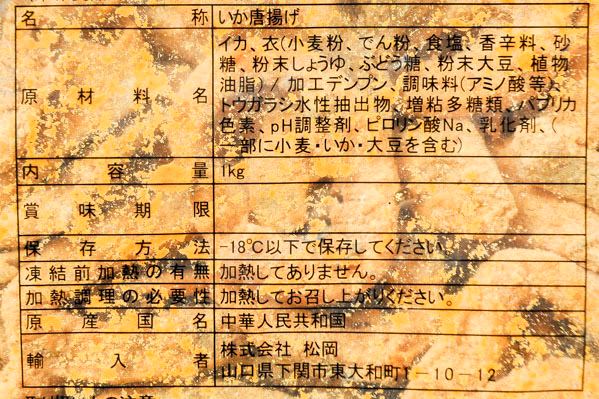 名称 いか唐揚げ
原材料名 イカ、衣(小麦粉、でん粉、食塩、香辛料、砂
糖、粉末しょうゆ、ぶどう糖、粉末大豆、植物
油脂) / 加工デンプン、調味料(アミノ酸等)、
トウガラシ水性抽出物、増粘多糖類、パプリカ
色素、pH調整剤、ピロリン酸Na、乳化剤、(
一部に小麦・いか・大豆を含む)
内容量 1kg
賞味期限
保存方法 -18℃以下で保存してください。
凍結前加熱の有無 加熱してありません。
加熱調理の必要性 加熱してお召し上がりください。
原産国名 中華人民共和国
輸入者 株式会社 松岡
山口県下関市東大和町1-10-12